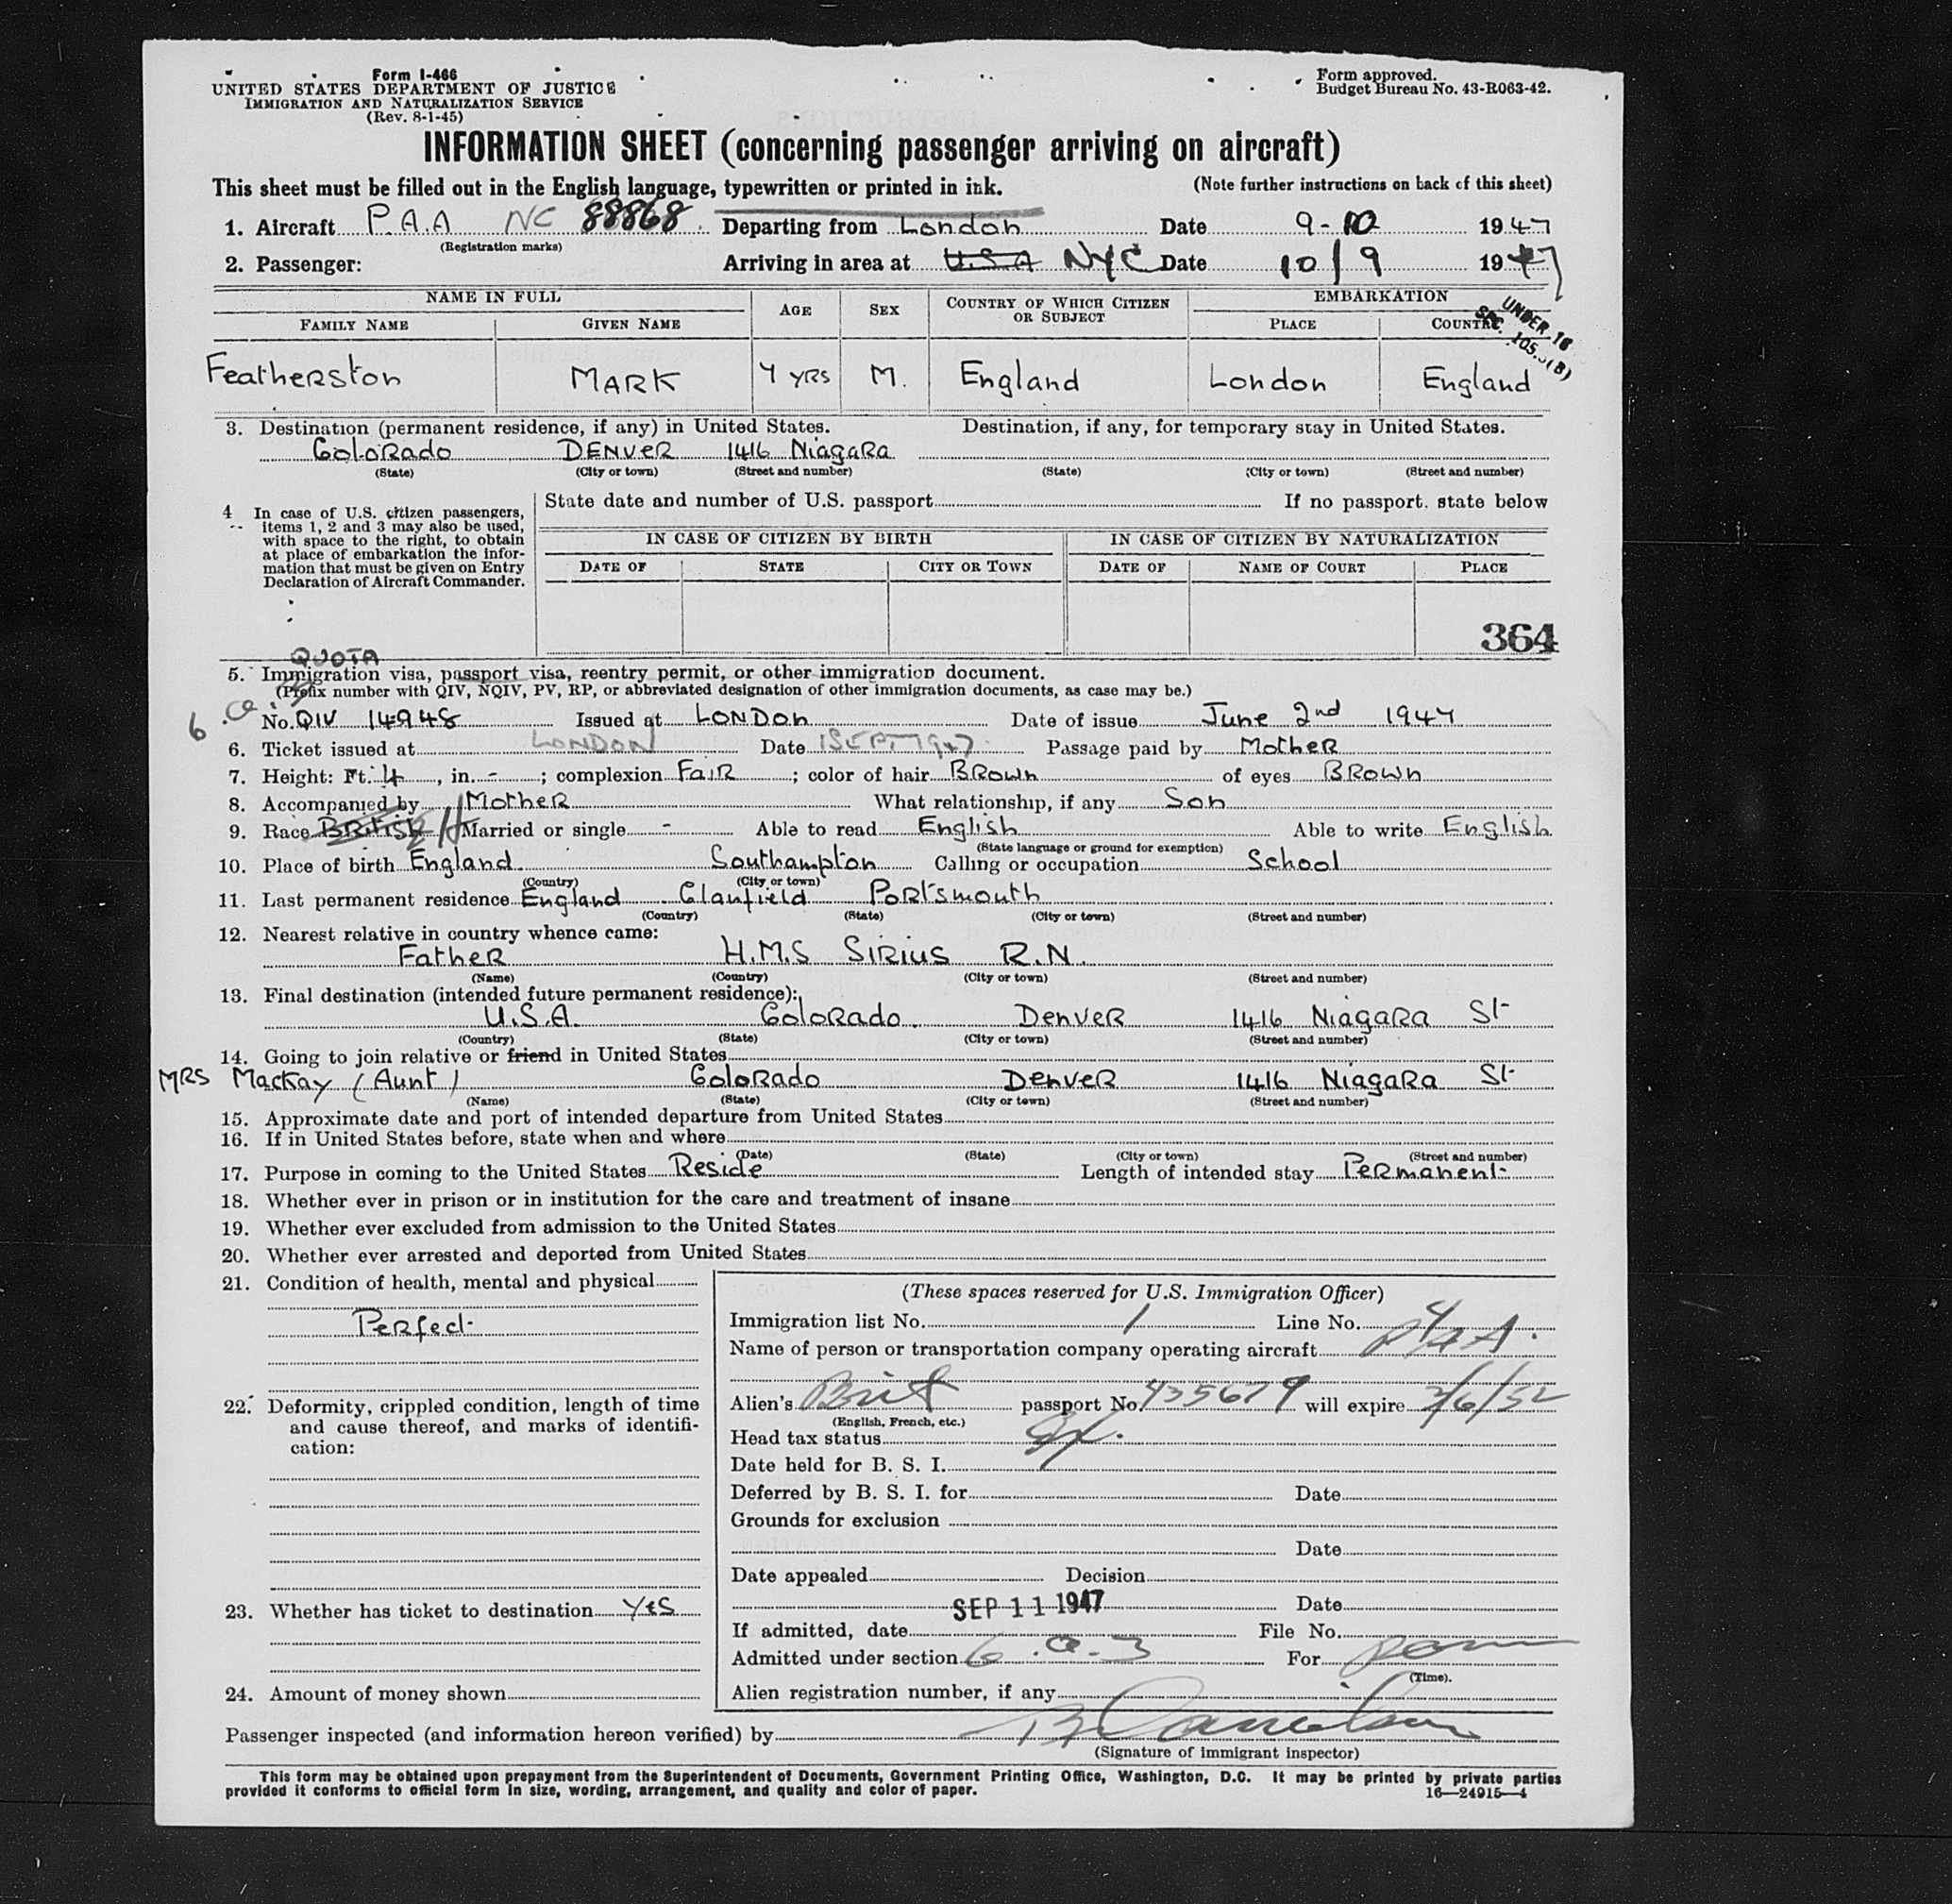 Form I-466
UNITED STATES DEPARTMENT OF JUSTICE
IMMIGRATION AND NATURALIZATION SERVICE
(Rev. 8-1-45)
Form approved.
Budget Bureau No. 43-R063-42.
INFORMATION SHEET (concerning passenger arriving on aircraft)
This sheet must be filled out in the English language, typewritten or printed in ink. (Note further instructions on back of this sheet)
1. Aircraft P.A.A NC 88868 Departing from London Date 9-10 1947
(Registration marks)
2. Passenger: Arriving in area at U.S.A NYC Date 10/9 1947
NAME IN FULL AGE SEX COUNTRY OF WHICH CITIZEN OR SUBJECT EMBARKATION
FAMILY NAME GIVEN NAME PLACE COUNTRY
UNDER 16
SEC. 105.3(B)
Featherston MARK 4 YRS M. England London England
3. Destination (permanent residence, if any) in United States. Destination, if any, for temporary stay in United States.
Colorado DENVER 1416 Niagara
(State) (City or town) (Street and number) (State) (City or town) (Street and number)
4 In case of U.S. citizen passengers, items 1, 2 and 3 may also be used, with space to the right, to obtain at place of embarkation the information that must be given on Entry Declaration of Aircraft Commander.
State date and number of U.S. passport If no passport, state below
IN CASE OF CITIZEN BY BIRTH IN CASE OF CITIZEN BY NATURALIZATION
DATE OF STATE CITY OR TOWN DATE OF NAME OF COURT PLACE
364
QUOTA
5. Immigration visa, passport visa, reentry permit, or other immigration document.
(Prefix number with QIV, NQIV, PV, RP, or abbreviated designation of other immigration documents, as case may be.)
No. QIV 14948 Issued at LONDON Date of issue June 2nd 1947
6. Ticket issued at LONDON Date 1 SEPT 1947 Passage paid by Mother
7. Height: Ft. 4, in. - ; complexion FAIR ; color of hair BROWN of eyes BROWN
8. Accompanied by Mother What relationship, if any Son
9. Race British Married or single - Able to read English Able to write English
(State language or ground for exemption)
10. Place of birth England Southampton Calling or occupation School
(Country) (City or town)
11. Last permanent residence England Clanfield Portsmouth
(Country) (State) (City or town) (Street and number)
12. Nearest relative in country whence came:
Father H.M.S SIRIUS R.N.
(Name) (Country) (City or town) (Street and number)
13. Final destination (intended future permanent residence):
U.S.A. Colorado Denver 1416 Niagara St
(Country) (State) (City or town) (Street and number)
14. Going to join relative or friend in United States
MRS Mackay (Aunt) Colorado Denver 1416 Niagara St
(Name) (State) (City or town) (Street and number)
15. Approximate date and port of intended departure from United States
16. If in United States before, state when and where
(Date) (State) (City or town) (Street and number)
17. Purpose in coming to the United States Reside Length of intended stay Permanent
18. Whether ever in prison or in institution for the care and treatment of insane
19. Whether ever excluded from admission to the United States
20. Whether ever arrested and deported from United States
21. Condition of health, mental and physical
Perfect
22. Deformity, crippled condition, length of time and cause thereof, and marks of identification:
23. Whether has ticket to destination Yes
24. Amount of money shown
(These spaces reserved for U.S. Immigration Officer)
Immigration list No. 1 Line No. 4
Name of person or transportation company operating aircraft PAA.
Alien's Brit passport No. 435679 will expire 2/6/52
(English, French, etc.)
Head tax status Ex.
Date held for B. S. I.
Deferred by B. S. I. for Date
Grounds for exclusion
Date
Date appealed Decision
SEP 11 1947 Date
If admitted, date File No.
Admitted under section 6.a.3 For perm
(Time).
Alien registration number, if any
Passenger inspected (and information hereon verified) by
(Signature of immigrant inspector)
This form may be obtained upon prepayment from the Superintendent of Documents, Government Printing Office, Washington, D.C. It may be printed by private parties
provided it conforms to official form in size, wording, arrangement, and quality and color of paper. 16—24915-4